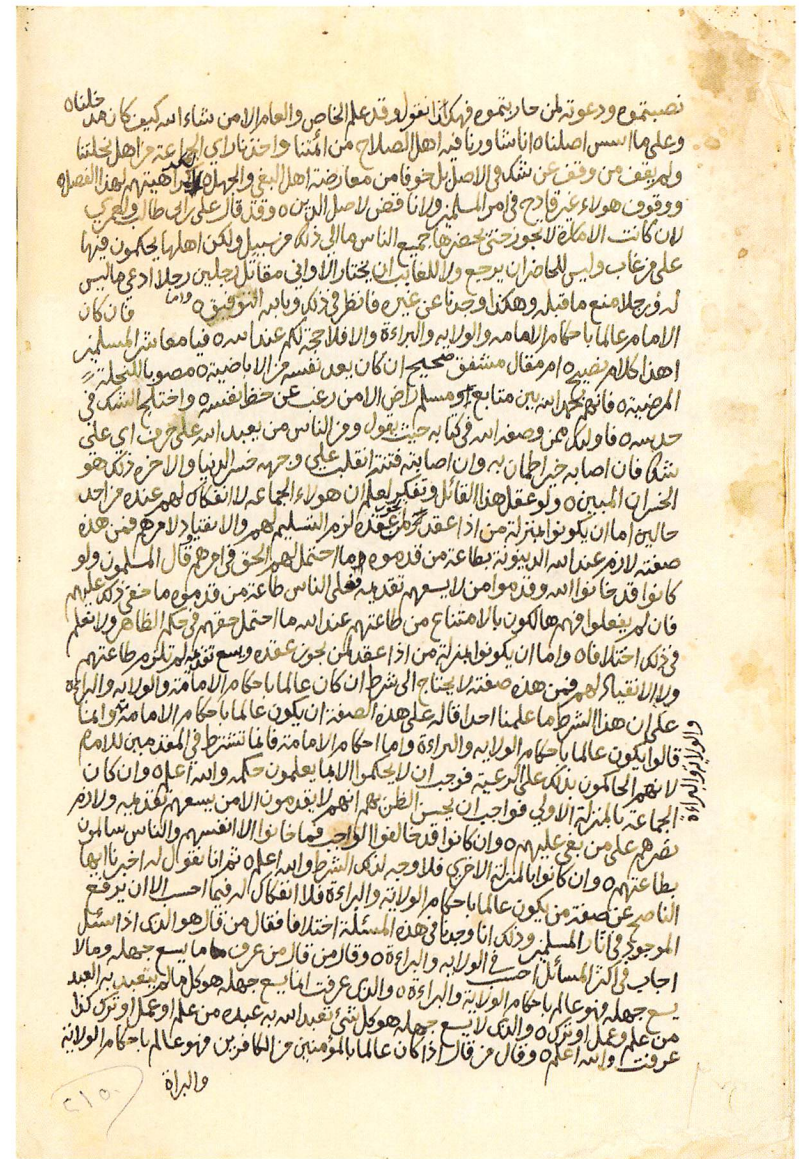 نصبتموه ودعوته لمن حاربتموه فهكذا نقول وقد علم الخاص والعام الا من شاء الله كيف كان مدخلناه
وعلى ما اسس اصلناه انا شاورنا فيه اهل الصلاح من ائمتنا واخذنا راي الجماعة من اهل نحلتنا
ولم يقف من وقف عن شك في الاصل بل خوفا من معارضة اهل البغي والجهل لهذا الفصل ه
ووقوف هولاء غير قادح في امر المسلمين ولا ناقض لاصل الدين ه وقد قال علي بن ابي طالب ولعمري
لان كانت الامامة لا تجوز حتى يحضرها جميع الناس ما الى ذلك من سبيل ولكن اهلها يحكمون فيها
على من غاب وليس للحاضر ان يرجع ولا للغايب ان يختار الا واني مقاتل رجلين رجلا ادعى ما ليس
له ورجلا منع ما قبله وهكذا وجدنا عن غيره فانظر في ذلك وبالله التوفيق ه واما فان كان
الامام عالما باحكام الامامه والولايه والبراءة والا فلا حجة لكم عند الله ه فيا معاشر المسلمين
اهذا كلام نصيح ام مقال مشفق صحيح ان كان يعد نفسه من الاباضية ه مصوبا للنحلة
المرضية ه فانهم بحمد الله بين متابع ومسلم راض الا من رغب عن حظ نفسه ه واختلج الشك في
حدسه ه فاولئك ممن وصفه الله في كتابه حيث يقول ومن الناس من يعبد الله على حرف اي على
شك فان اصابه خير اطمان به وان اصابته فتنة انقلب على وجهه خسر الدنيا والاخره ذلك هو
الخسران المبين ه ولو عقل هذا القائل وتفكر لعلم ان هولاء الجماعه لا انفكاك لهم عنده من احد
حالين اما ان يكونوا بمنزلة من اذا عقد لمن يجوز عقده لزم التسليم لهم والانقياد لامرهم فمن هذه
صفته لازم عند الله الدينونة بطاعة من قدموه ما احتمل لهم الحق في امرهم وقال المسلمون ولو
كانوا قد خانوا الله وقدموا من لا يسعهم تقديمه فعلى الناس طاعة من قدموه ما خفي ذلك عليهم
فان لم يفعلوا فهم هالكون بالامتناع من طاعتهم عند الله ما احتمل حقهم في حكم الظاهر ولا نعلم
في ذلك اختلافا ه واما ان يكونوا بمنزلة من اذا عقد لمن يجوز عقده ويسع تقديمه لم تلزم طاعتهم
ولا الانقياد لهم فمن هذه صفته لا يحتاج الى شرط ان كان عالما باحكام الامامة والولايه والبراءة
على ان هذا الشرط ما علمنا احدا قاله على هذه الصفة ان يكون عالما باحكام الامامة وانما
قالوا يكون عالما باحكام الولايه والبراءة واما احكام الامامة فانما تشترط في المقدمين للامام
لانهم الحاكمون بذلك على الرعية فوجب ان لا يحكموا الا بما يعلمون حكمه والله اعلم ه وان كان
الجماعة بالمنزلة الاولي فواجب ان يحسن الظن بهم انهم لا يقدمون الا من يسعهم تقديمه ولازم
نصرهم على من بغى عليهم ه وان كانوا قد خالفوا الواجب فما خانوا الا انفسهم والناس سالمون
بطاعتهم ه وان كانوا بالمنزلة الاخرى فلا وجه لذلك الشرط والله اعلم ه ثم انا نقول له اخبرنا ايها
الناصح عن صفة من يكون عالما باحكام الولاية والبراءة فلا انفكاك له فيما احسب الا ان يرفع
الموجود في اثار المسلمين وذلك انا وجدنا في هذه المسئلة اختلافا فقال من قال هو الذي اذا سئل
اجاب في اكثر المسائل احسب في الولايه والبراءة ه وقال من قال من عرف ما يسع جهله وما لا
يسع جهله فهو عالم باحكام الولاية والبراءة ه والذي عرفت انما يسع جهله هو كل ما لم يتعبد به العبد
من علم وعمل او ترك ه والذي لا يسع جهله هو كل شئ تعبد الله به عبده من علم او عمل او ترك كذا
عرفت والله اعلم ه وقال من قال اذا كان عالما بالمؤمنين من الكافرين فهو عالم باحكام الولاية
والبراة
والولايه والبراءة